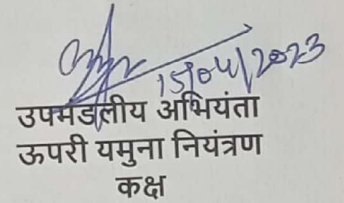 15/04/2023
उपमंडलीय अभियंता
ऊपरी यमुना नियंत्रण
कक्ष